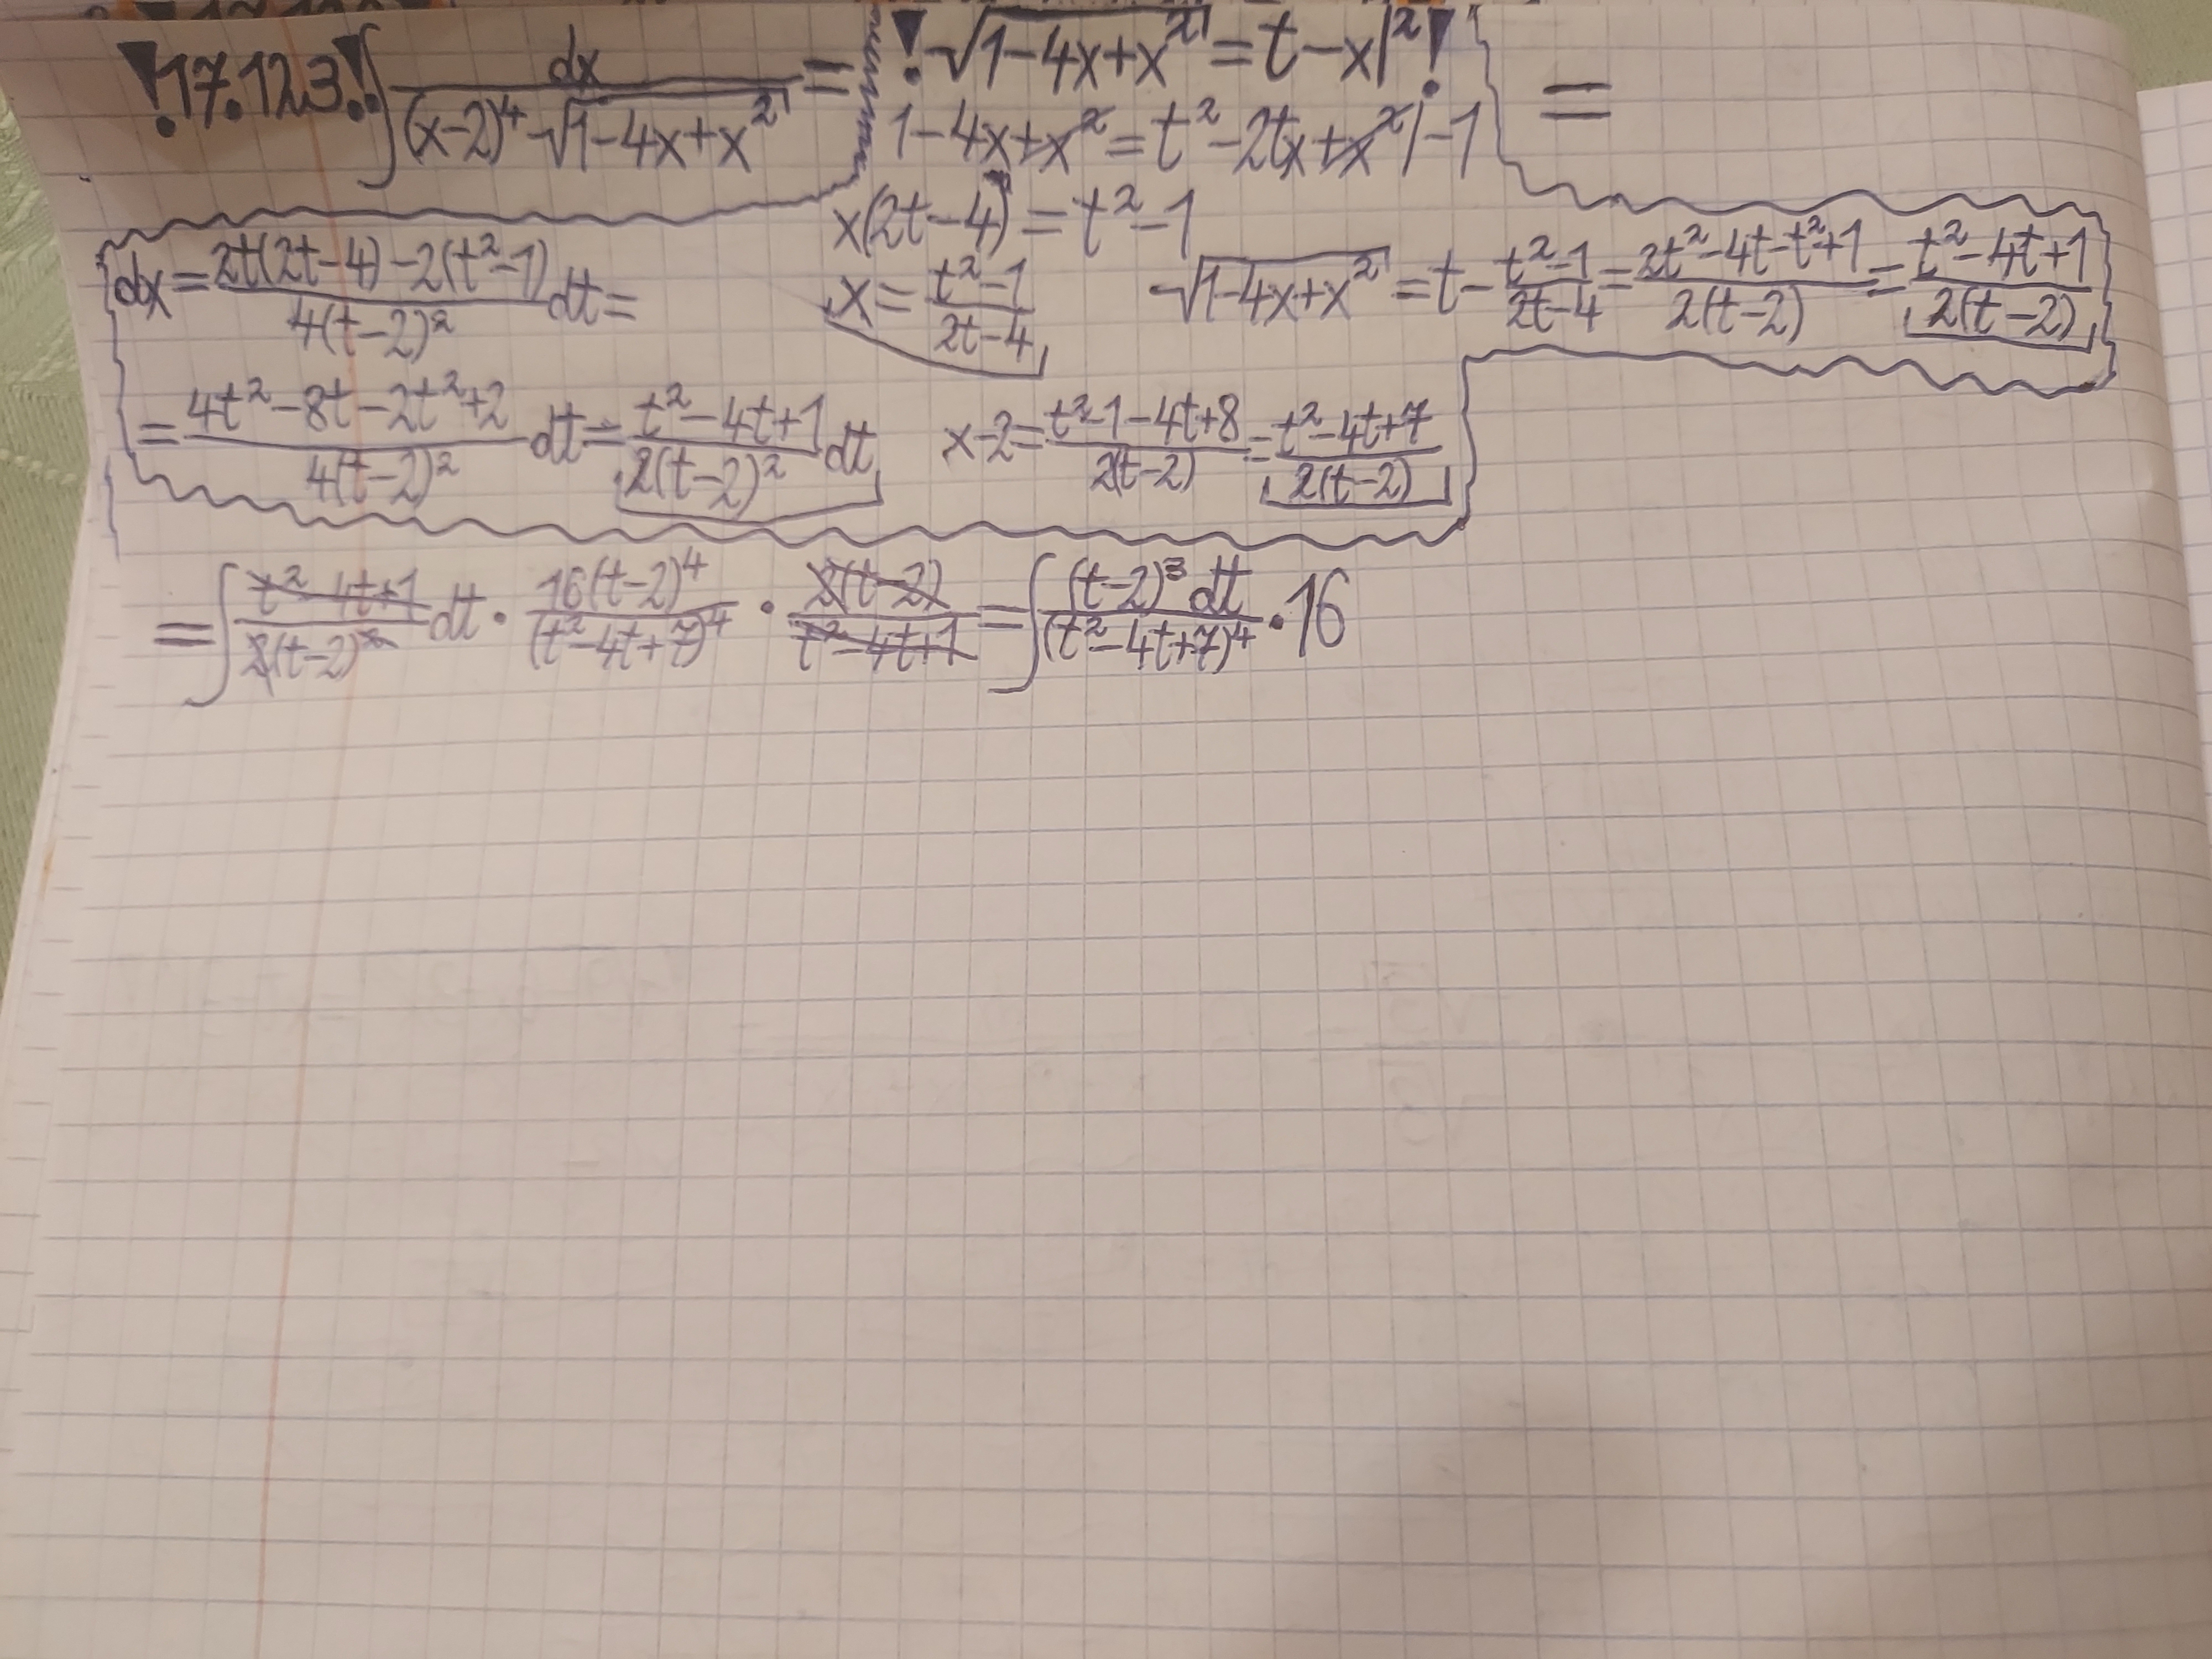 !17.123.! ∫ dx / ((x-2)⁴ √(1-4x+x²)) = ! √(1-4x+x²) = t-x |² ! =
1-4x+x² = t²-2tx+x² |-1
x(2t-4) = t²-1
dx = (2t(2t-4)-2(t²-1)) / (4(t-2)²) dt = x = (t²-1) / (2t-4) √(1-4x+x²) = t - (t²-1)/(2t-4) = (2t²-4t-t²+1) / (2(t-2)) = (t²-4t+1) / (2(t-2))
= (4t²-8t-2t²+2) / (4(t-2)²) dt = (t²-4t+1) / (2(t-2)²) dt x-2 = (t²-1-4t+8) / (2(t-2)) = (t²-4t+7) / (2(t-2))
= ∫ (t²-4t+1) / (2(t-2)²) dt · 16(t-2)⁴ / (t²-4t+7)⁴ · 2(t-2) / (t²-4t+1) = ∫ (t-2)³ dt / (t²-4t+7)⁴ · 16